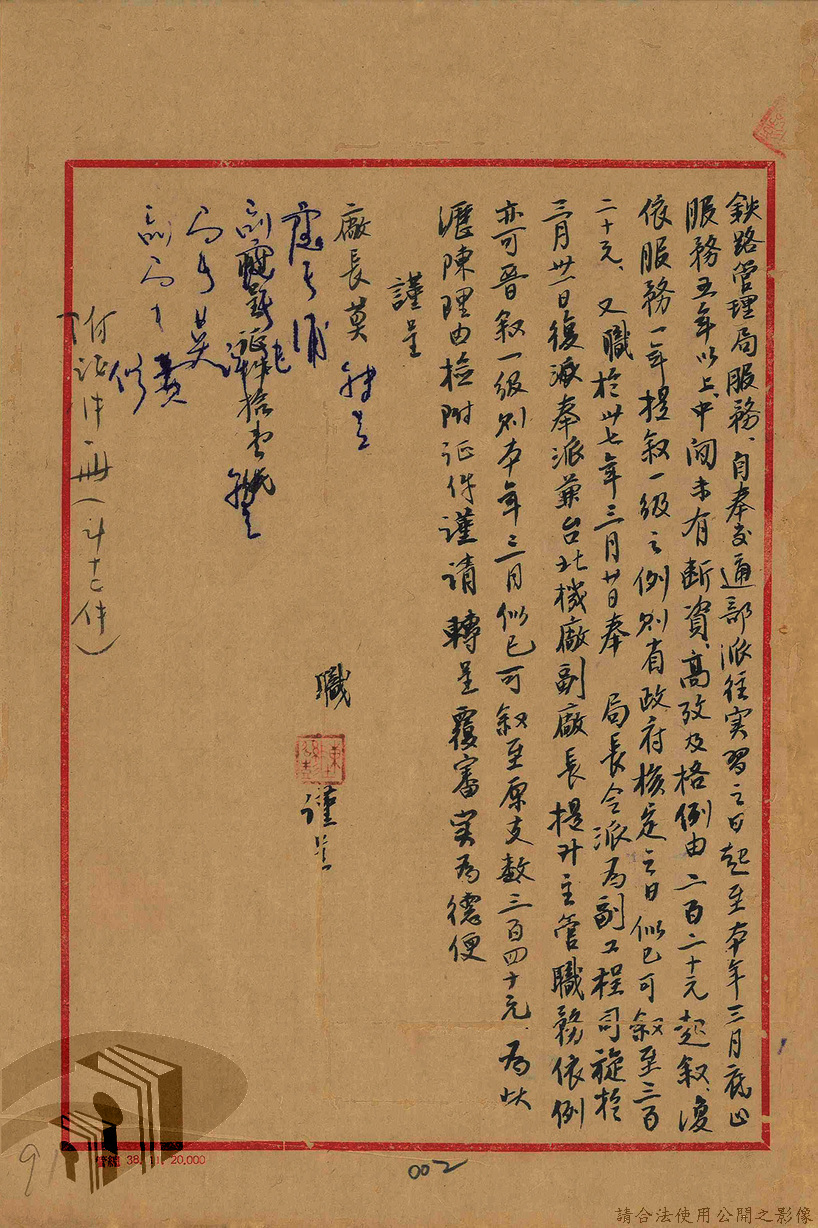 鉄路管理局服務、自奉交通部派往实習之日起至本年三月底止
服務五年以上中间未有断資、高攷及格例由二百二十元起叙、復
依服務一年提叙一级之例则省政府核定之日似已可叙至三百
二十元、又職於卅七年三月廿日奉 局長令派為副工程司旋於
三月卅一日復減奉派兼台北機廠副廠長提升主管職務依例
亦可晉叙一级则本年三月似已可叙至原支数三百四十元、為此
瀝陳理由檢附证件謹请 轉呈覆審实為德便
謹呈
廠長莫
職
謹呈
附证件一册(计十七件)
管組 38.11.20.000
002
91
請合法使用公開之影像